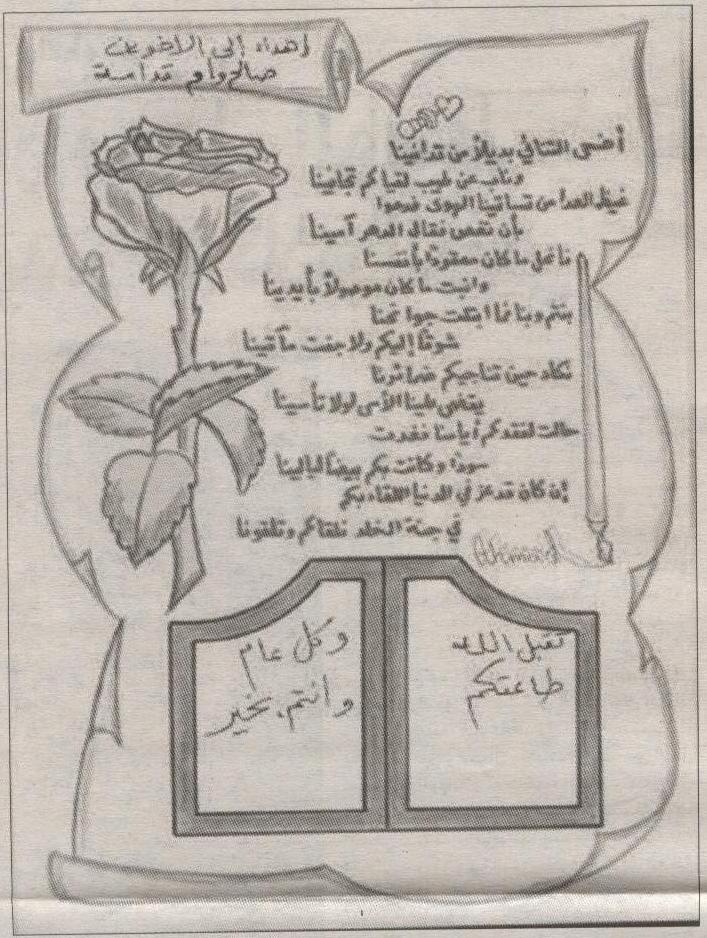 إهداء إلى الأخوين
صالح وأم قداسة
أضحى التنائي بديلاً من تدانينا
وناب عن طيب لقياكم تجافينا
غيظ العدا من تساقينا الهوى فدعوا
بأن نغص فقال الدهر آمينا
فانحل ما كان معقودًا بأنفسنا
وانبت ما كان موصولاً بأيدينا
بنتم وبنا فما ابتلت جوانحنا
شوقًا إليكم ولا جفت مآقينا
نكاد حين تناجيكم ضمائرنا
يقضي علينا الأسى لولا تأسينا
حالت لفقدكم أيامنا فغدت
سودًا وكانت بكم بيضًا ليالينا
إن كان قد عز في الدنيا اللقاء بكم
في جنة الخلد نلقاكم وتلقونا
Ahmed
تقبل الله
طاعتكم
وكل عام
وانتم بخير